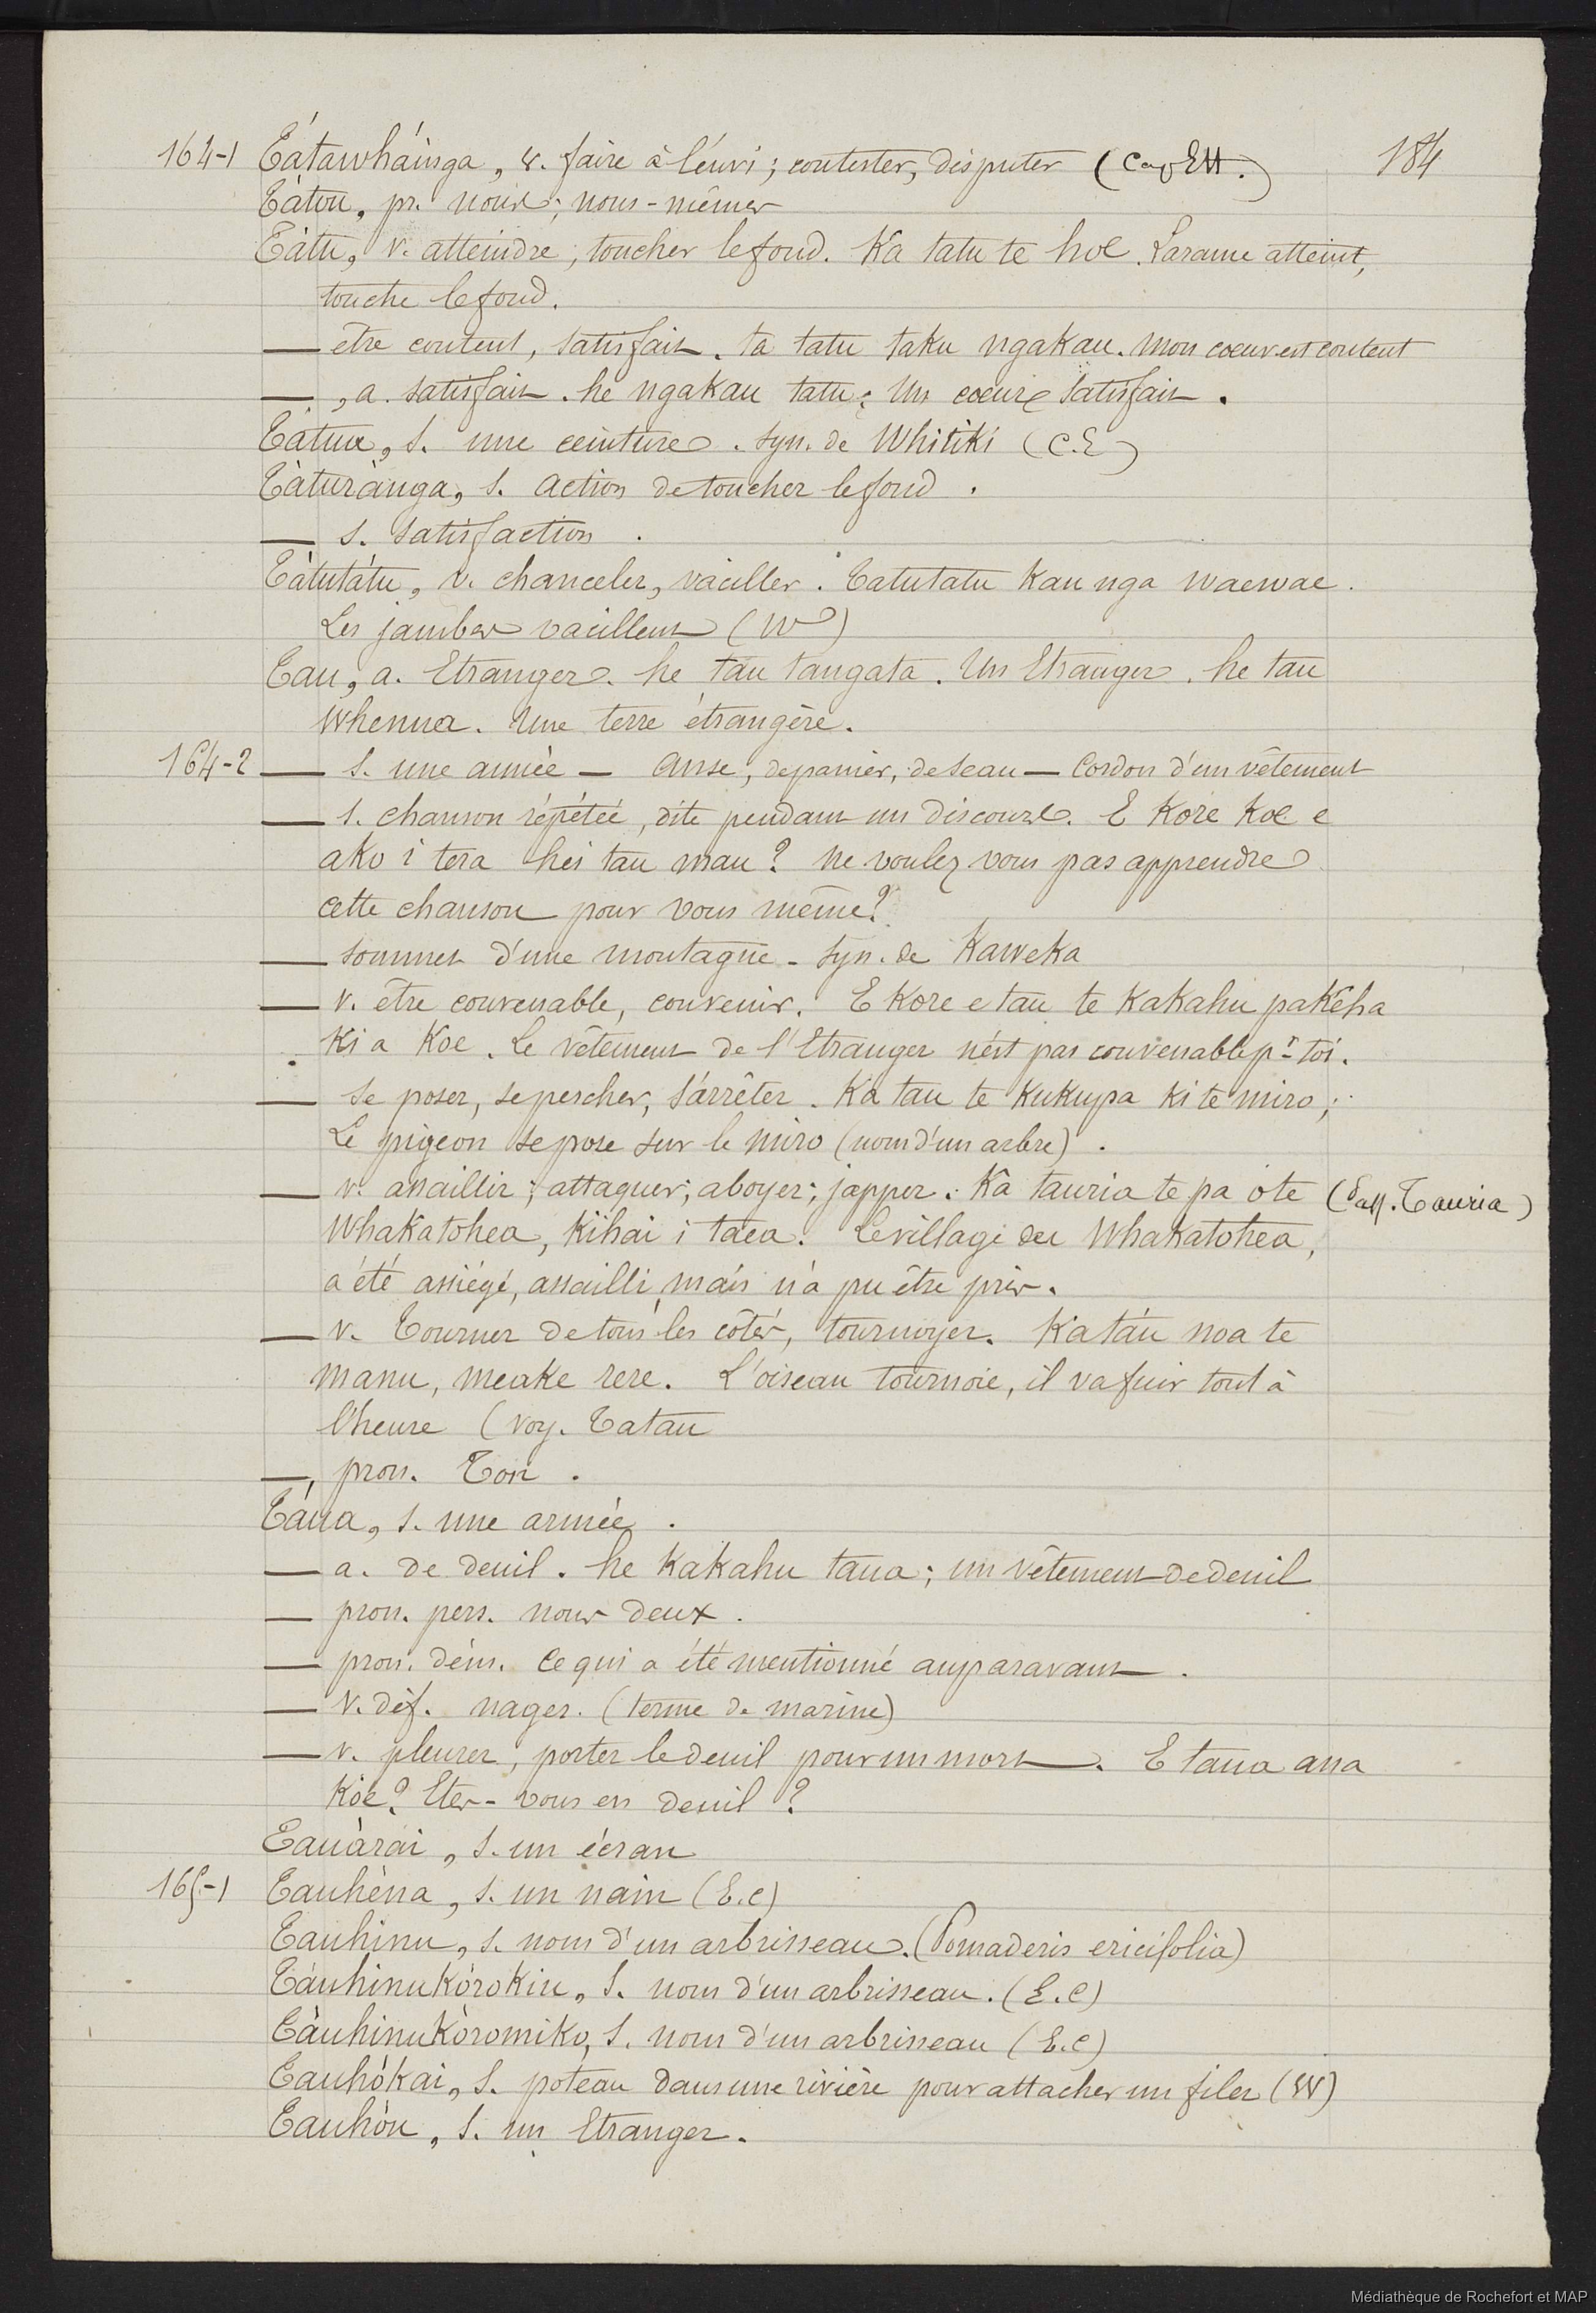 164-1 Tátawháinga, v. faire à l'envi; contester, disputer (Cap Est.) 184
Tátou, pr. nous; nous-mêmes
Tátu, v. atteindre; toucher le fond. Ka tatu te hoe. La rame atteint,
touche le fond.
— etre content, satisfait. ta tatu taku ngakau. mon coeur est content
—, a. satisfait. he ngakau tatu; Un coeur satisfait.
Tátua, s. une ceinture. syn. de Whitiki (C.E)
Tàturànga, s. action de toucher le fond.
— s. satisfaction.
Tàtutátu, v. chanceler, vaciller. Tatutatu Kau nga waewae.
Les jambes vacillent (W)
Tau, a. Etranger. he tau tangata. Un Etranger. he tau
Whenua. Une terre étrangère.
164-2 — s. une année — Anse, de panier, de seau — Cordon d'un vêtement
— s. chanson répétée, dite pendant un discours. E Kore Koe e
ako i tera hei tau mau? ne voulez vous pas apprendre
cette chanson pour vous même?
— sommet d'une montagne - Syn. de Kaweka
— v. être convenable, convenir. E Kore e tau te Kakahu pakeha
Ki a Koe. Le vêtement de l'Etranger n'est pas convenable pr toi.
— Se poser, se percher, s'arrêter. Ka tau te Kukupa ki te miro;
Le pigeon se pose sur le miro (nom d'un arbre).
— v. assaillir; attaquer; aboyer; japper. Ka tauria te pa o te (Pass. Tauria)
Whakatohea, Kihai i taea. Le village du Whakatohea,
a été assiégé, assailli, mais n'a pu être pris.
— v. Tourner de tous les côtés, tournoyer. Ka táu noa te
manu, meake rere. L'oiseau tournoie, il va fuir tout à
l'heure (voy. Tatau
—, pron. Ton.
Táua, s. une armée.
— a. de deuil. he Kakahu taua; un vêtement de deuil
— pron. pers. nous deux.
— pron. dém. Ce qui a été mentionné auparavant.
— v. déf. nager. (terme de marine)
— v. pleurer, porter le deuil pour un mort. E taua ana
Koe? Etes-vous en deuil?
Tauàrai, s. un écran
165-1 Tauhèna, s. un nain (E.C)
Tauhinu, s. nom d'un arbrisseau. (Pomaderis ericifolia)
Táuhinukórokiu, s. nom d'un arbrisseau. (E.C)
Tàuhinukòromiko, s. nom d'un arbrisseau (E.C)
Tauhókai, s. poteau dans une rivière pour attacher un filet (W)
Tauhóu, s. un Etranger.
Médiathèque de Rochefort et MAP